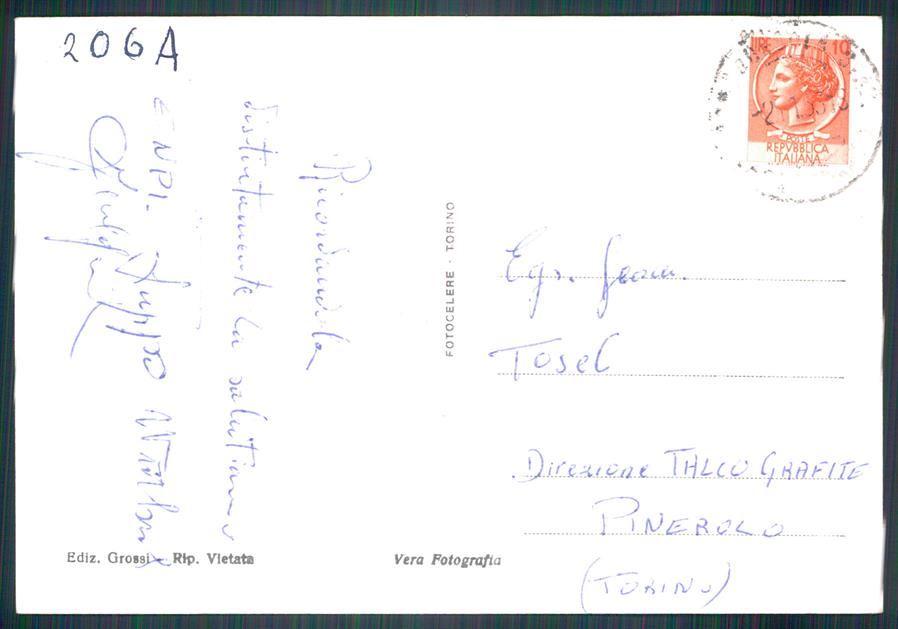 206A
Ricordandola
distintamente la salutiamo
ENPI.
LIRE 10
POSTE
REPVBBLICA
ITALIANA
FOTOCELERE - TORINO
Egr. Geom.
Tosel
Direzione TALCO GRAFITE
PINEROLO
(TORINO)
Ediz. Grossi - Rip. Vietata
Vera Fotografia